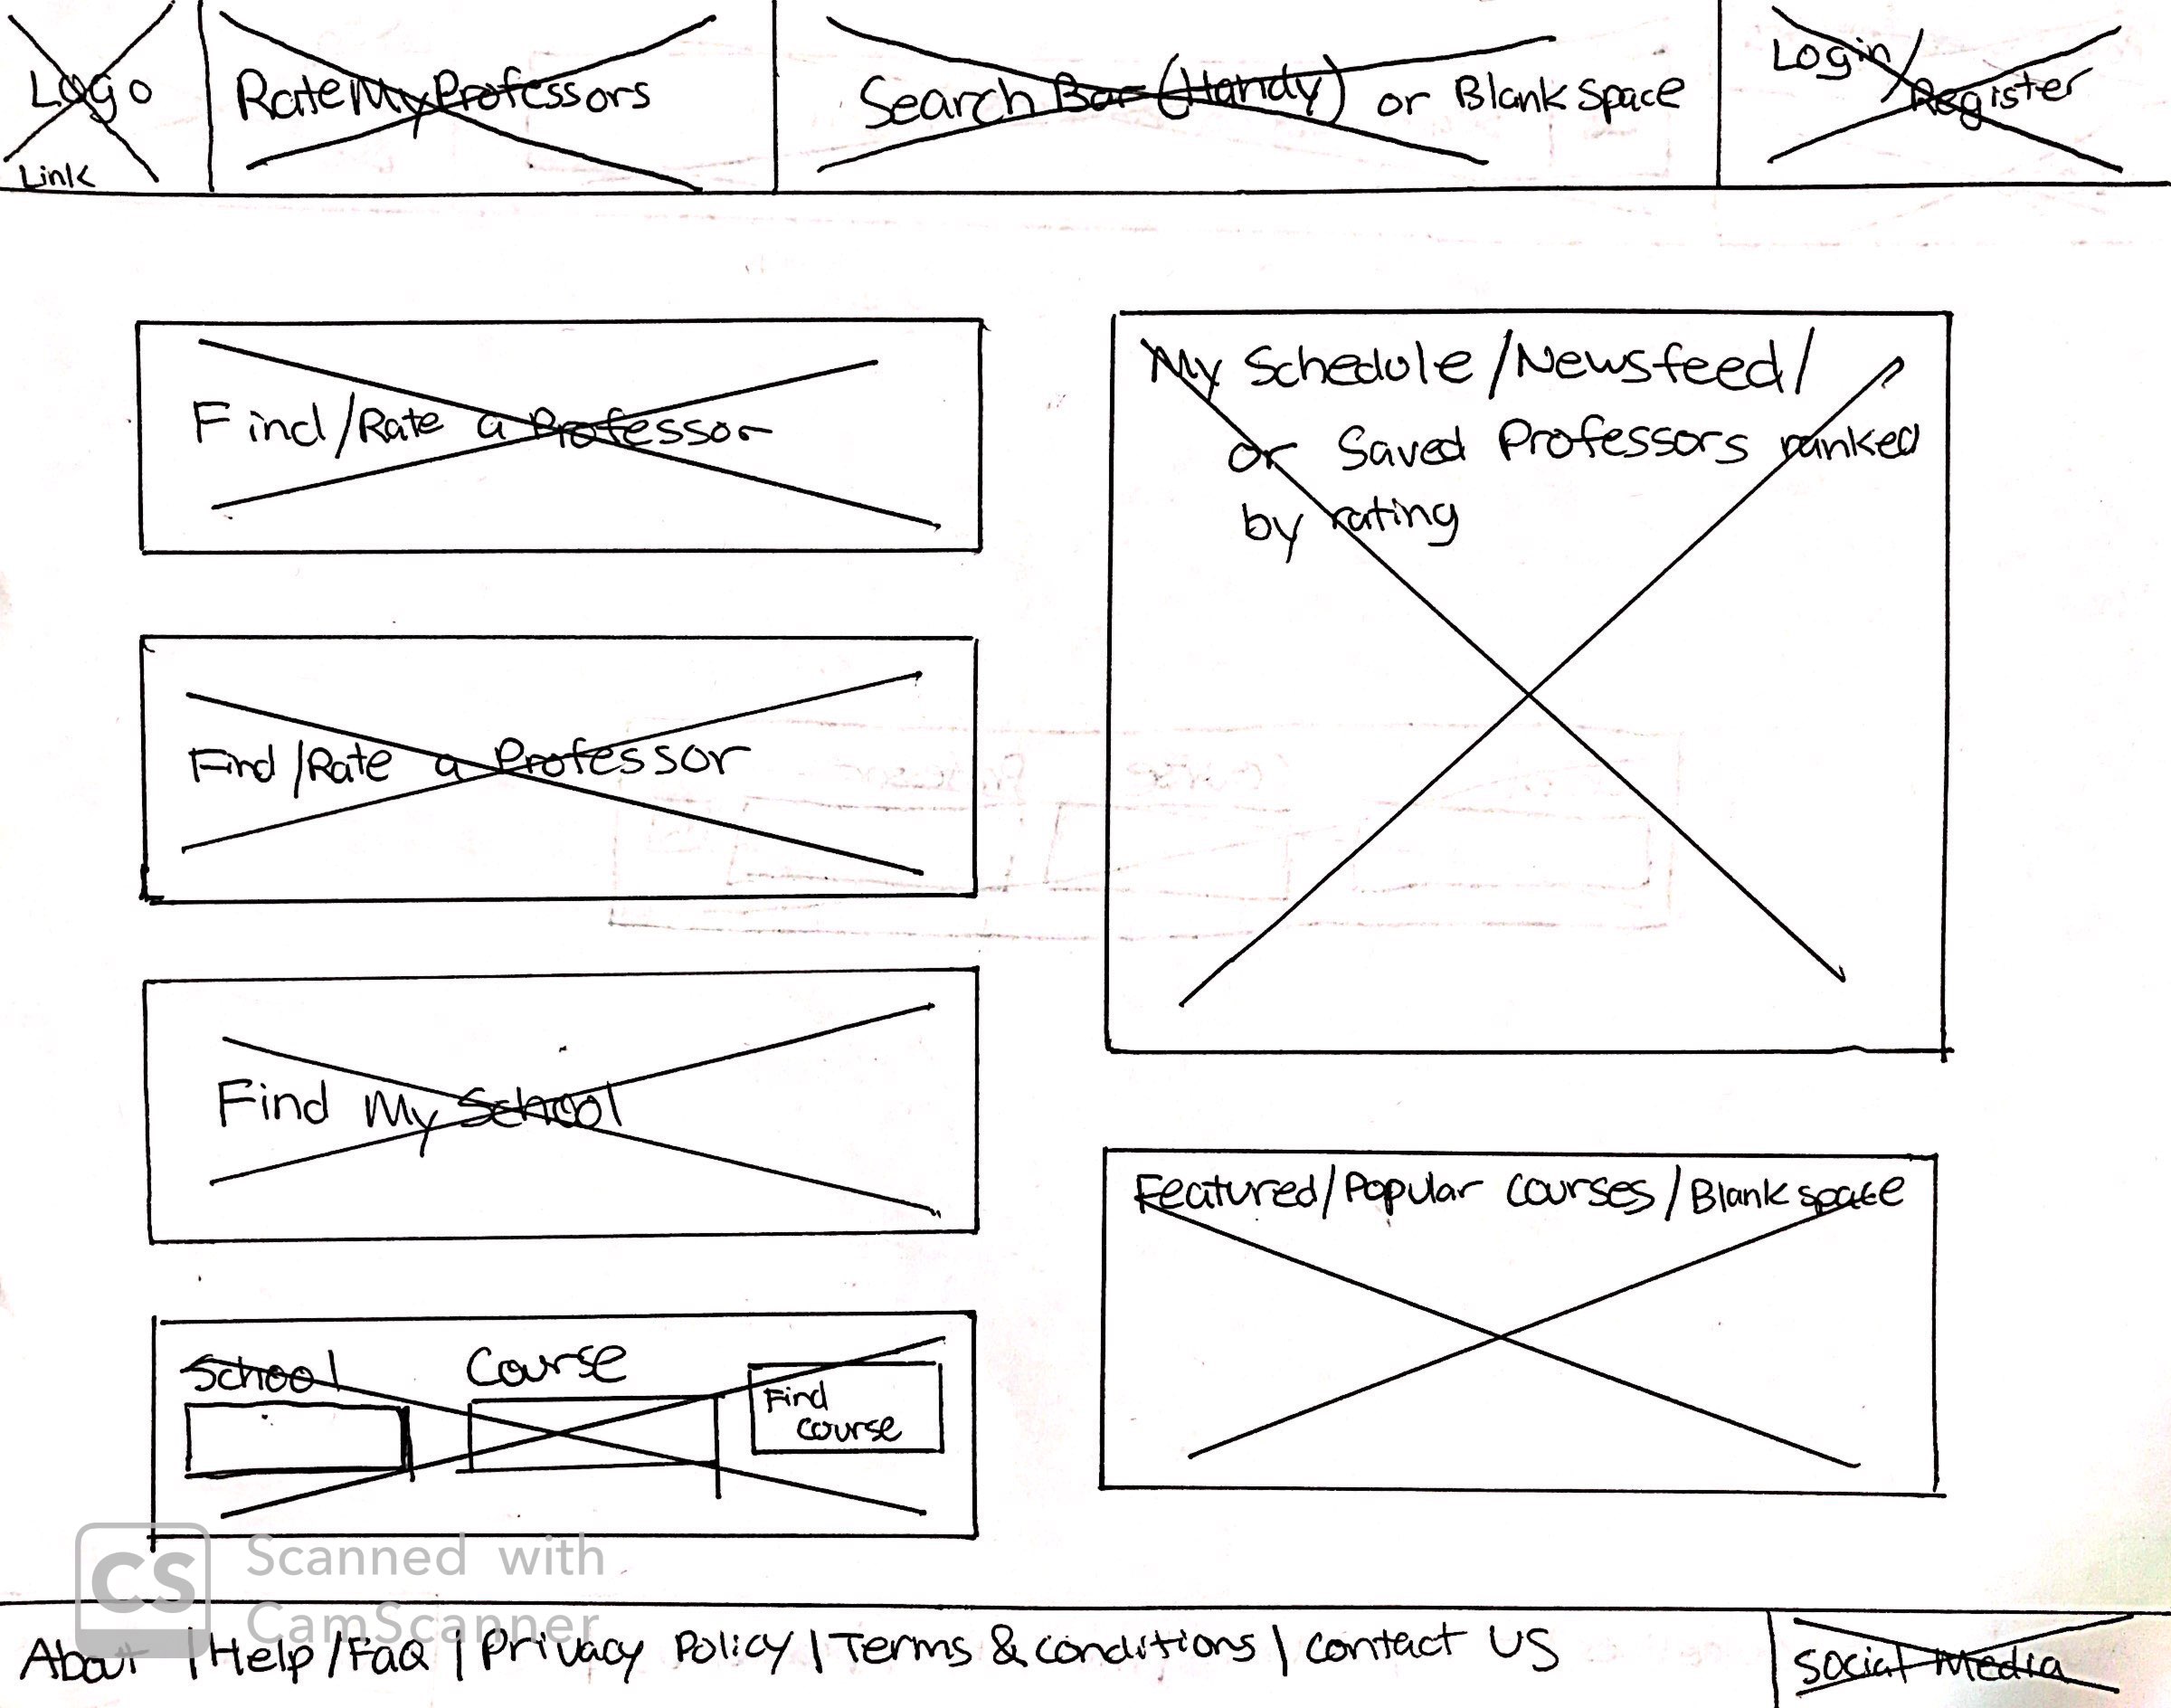 Logo
Link
RateMyProfessors
Search Bar (Handy) or Blank Space
Login/
Register
Find/Rate a Professor
Find/Rate a Professor
Find My School
School Course
Find
course
My Schedule/Newsfeed/
or Saved Professors ranked
by rating
Featured/Popular courses/Blank space
CS
Scanned with
CamScanner
About | Help/FAQ | Privacy Policy | Terms & conditions | Contact US
Social Media